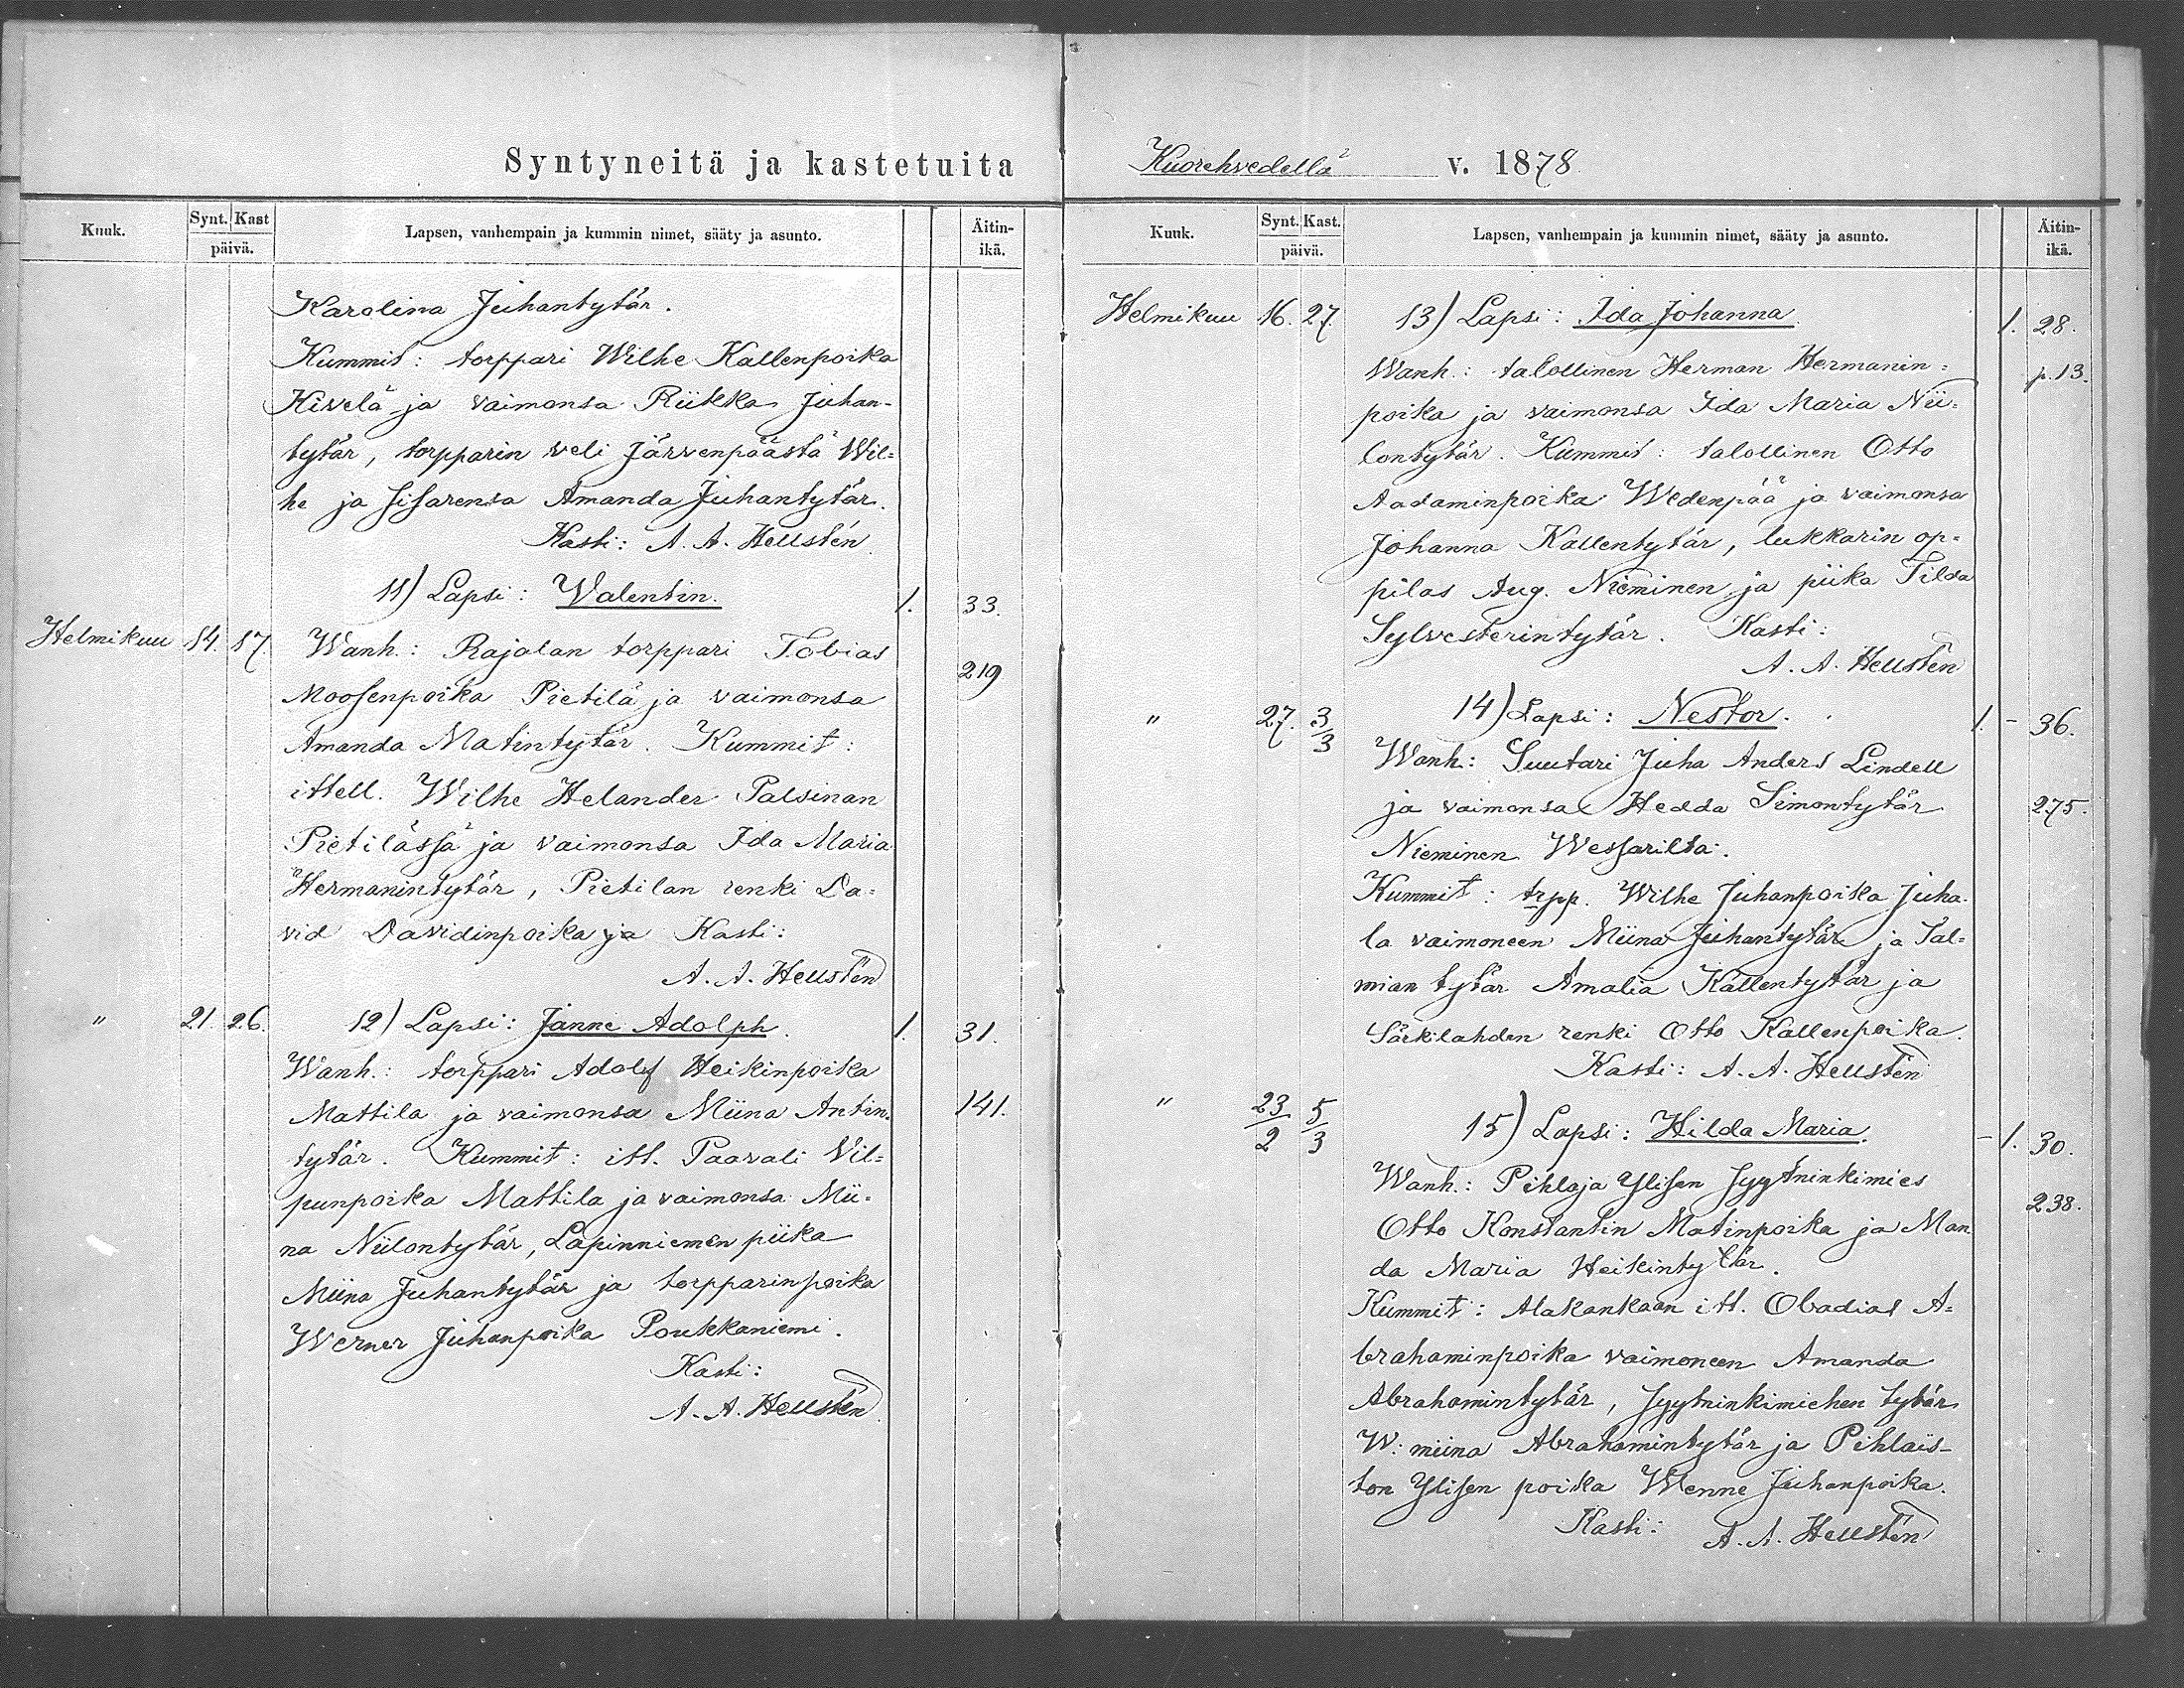 Syntyneitä ja kastetuita
Kuuk. Synt. Kast päivä. Lapsen, vanhempain ja kummin nimet, sääty ja asunto. Äitin-ikä.
Karolina Juhantytär.
Kummit: torppari Wilhe Kallenpoika
Kivelä ja vaimonsa Riikka Juhan-
tytär, torpparin veli Järvenpäästä Wil=
he ja sisarensa Amanda Juhantytär.
Kasti: A. A. Hellstén
11) Lapsi: Valentin. 1. 33.
Helmikuu 14. 17. Wanh.: Rajalan torppari Tobias 219
Moosenpoika Pietilä ja vaimonsa
Amanda Matintytär. Kummit:
ittell. Wilhe Helander Palsinan
Pietilässä ja vaimonsa Ida Maria
Hermanintytär, Pietilan renki Da=
vid Davidinpoika ja Kasti:
A. A. Hellstén
" 21. 26. 12) Lapsi: Janne Adolph. 1. 31.
Wanh.: torppari Adolf Heikinpoika
Mattila ja vaimonsa Miina Antin= 141.
tytär. Kummit: itt. Paavali Vil=
punpoika Mattila ja vaimonsa Mii=
na Niilontytär, Lapinniemen piika
Miina Juhantytär ja torpparinpoika
Werner Juhanpoika Poukkaniemi.
Kasti:
A. A. Hellstén
Kuorehvedellä v. 1878
Kuuk. Synt. Kast. päivä. Lapsen, vanhempain ja kummin nimet, sääty ja asunto. Äitin-ikä.
Helmikuu 16. 27. 13) Lapsi: Ida Johanna. 1. 28.
Wanh.: talollinen Herman Hermanin= p. 13.
poika ja vaimonsa Ida Maria Nii=
lontytär. Kummit: talollinen Otto
Aadaminpoika Wedenpää ja vaimonsa
Johanna Kallentytär, lukkarin op=
pilas Aug. Nieminen ja piika Tilda
Sylvesterintytär. Kasti:
A. A. Hellstén
" 27. 3/3 14) Lapsi: Nestor. 1. - 36.
Wanh: Suutari Juha Anders Lindell
ja vaimonsa Hedda Simontytär 275.
Nieminen Wessarilta.
Kummit: trpp. Wilhe Juhanpoika Juha-
la vaimoneen Miina Juhantytär ja Tal=
mian tytär Amalia Kallentytär ja
Särkilahden renki Otto Kallenpoika.
Kasti: A. A. Hellstén
" 23/2 5/3 15) Lapsi: Hilda Maria. - 1. 30.
Wanh.: Pihlaja Ylisen syytninkimies 238.
Otto Konstantin Matinpoika ja Man
da Maria Heikintytär.
Kummit: Alakankaan itt. Obadias A=
brahaminpoika vaimoneen Amanda
Abrahamintytär, syytninkimiehen tytär
W: miina Abrahamintytär ja Pihlais-
ton Ylisen poika Wenne Juhanpoika.
Kasti: A. A. Hellstén